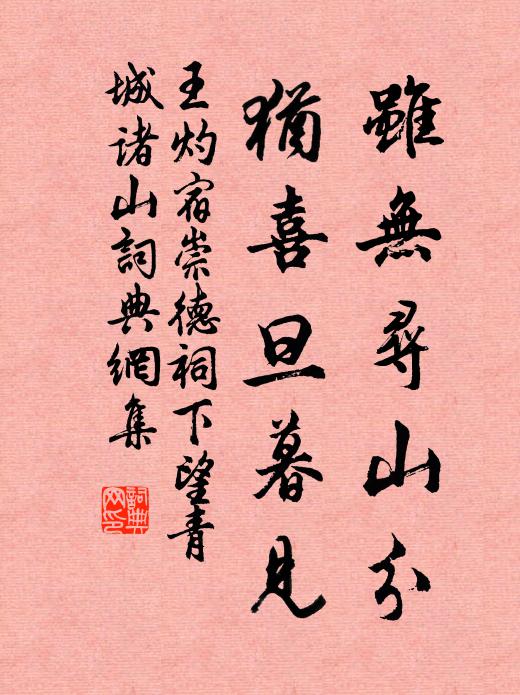 雖無尋山分
猶喜旦暮見
王灼宿崇德祠下望青
城诸山詞典網集
詞典
网印